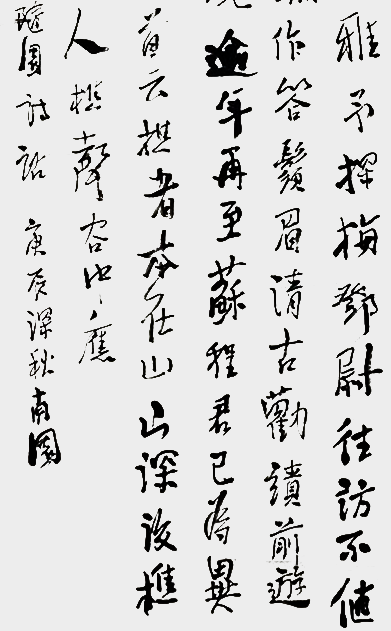 雅予探梅鄧尉往訪不值
作答鬚眉清古勸續前遊
逾年再至蘇程君已為異
云樵者本在山山深没樵
人樵聲容應
隨園詩話 庚辰深秋南園